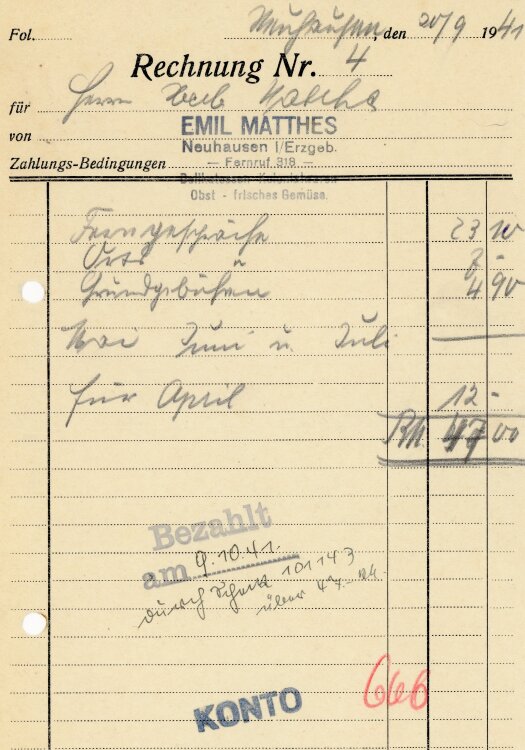 Fol. Neuhausen, den 20/9 1941
Rechnung Nr. 4
für Herrn
von EMIL MATTHES
Neuhausen i/Erzgeb.
Zahlungs-Bedingungen — Fernruf 318 —
Delikatessen - Kolonialwaren
Obst - frisches Gemüse.
Ferngespräche 23 10
Orts " 7 -
Grundgebühren 4 90
Mai Juni u. Juli —
für April 12 -
RM. 47 00
Bezahlt
am 9.10.41.
durch Scheck 101143
über 47.- RM.
KONTO 666